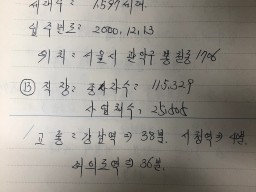 세대수 : 1.597세대.
입주년도 : 2000. 12. 13
위치 : 서울시 관악구 봉천동 1706
Ⓑ 직장 : 종사자수 : 115.329
사업체수 : 25.805
교통 : 강남역 ⇒ 38분. 시청역 ⇒ 4분.
여의도역 ⇒ 36분.